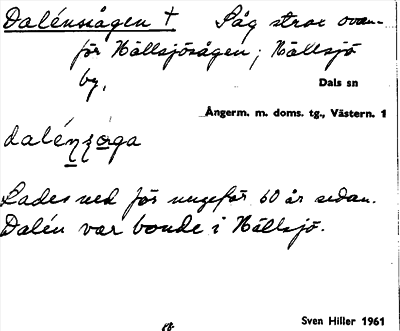 Dalénsågen † Låg strax ovan-
för Hällsjösågen; Hällsjö
by,
Dals sn
Ångerm. m. doms. tg., Västern. 1
dalénsåga
Lades ned för ungefär 60 år sedan.
Dalén var bonde i Hällsjö.
Sven Hiller 1961